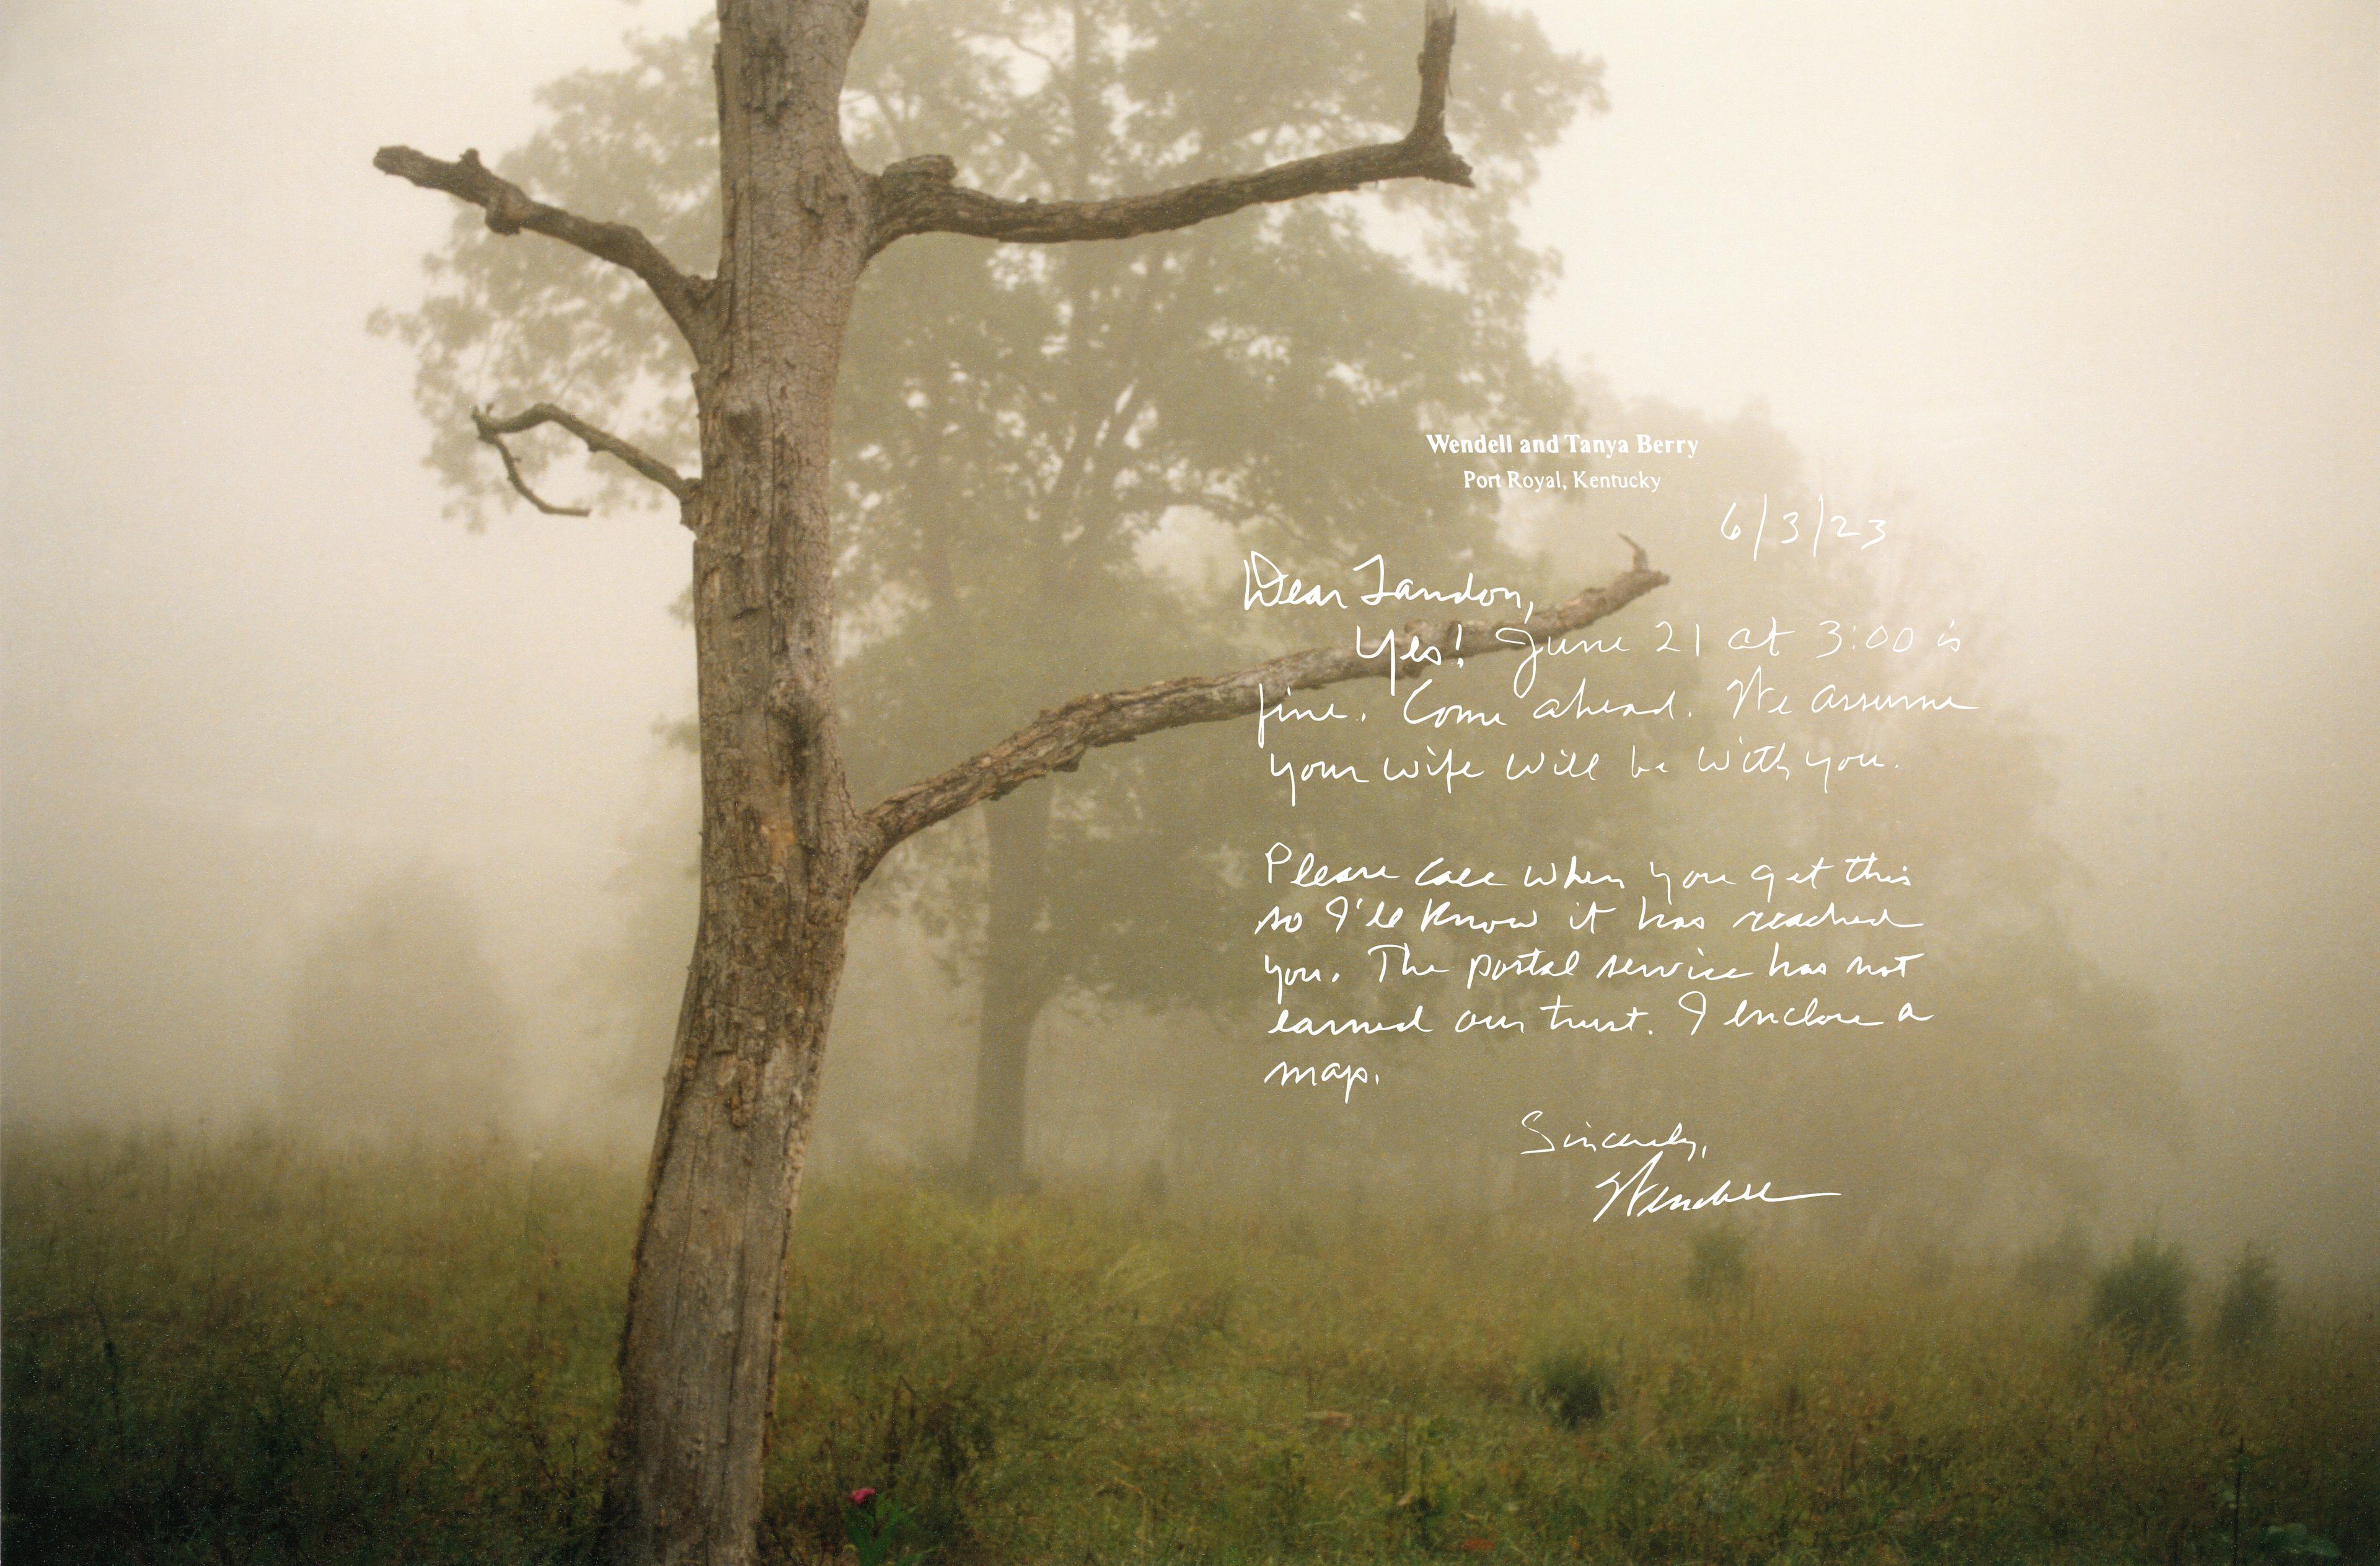 Wendell and Tanya Berry
Port Royal, Kentucky
6/3/23
Dear Landon,
Yes! June 21 at 3:00 is
fine. Come ahead. We assume
your wife will be with you.
Please call when you get this
so I'll know it has reached
you. The postal service has not
earned our trust. I enclose a
map.
Sincerely,
Wendell